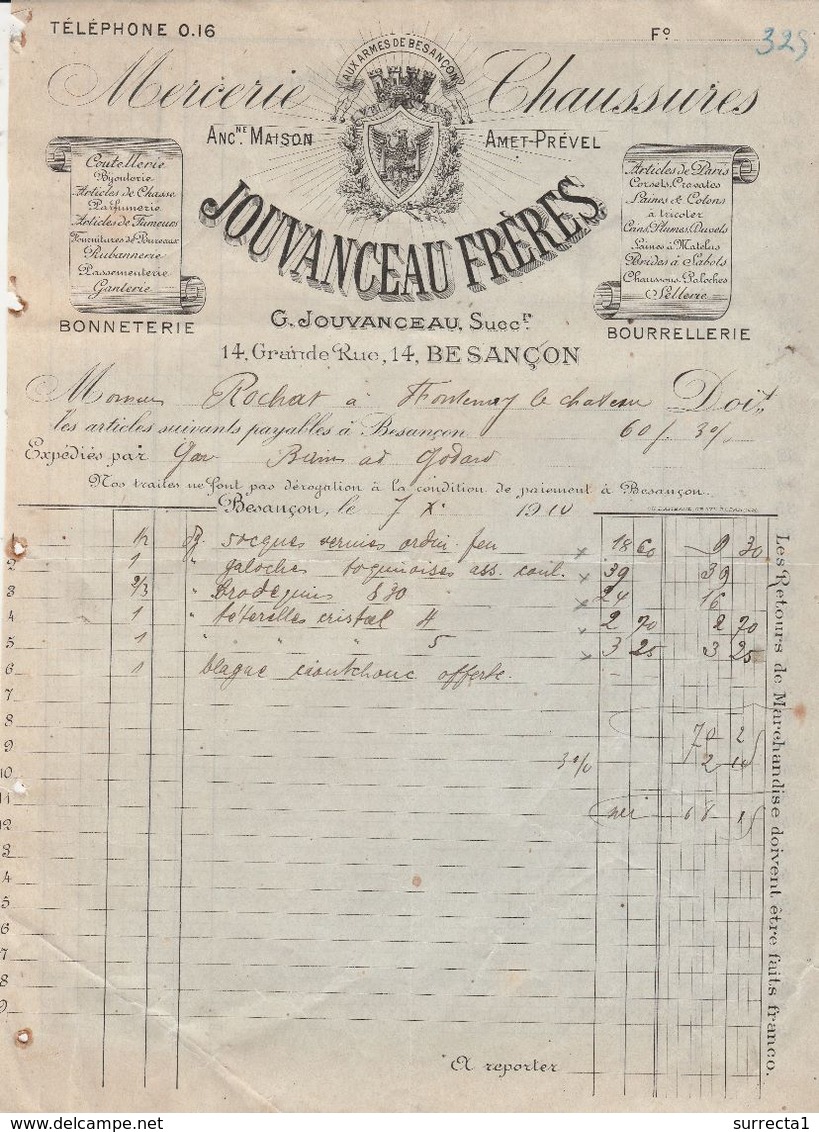 TÉLÉPHONE 0.16
Fº
325
AUX ARMES DE BESANÇON
Mercerie Chaussures
ANCNE. MAISON AMET-PRÉVEL
JOUVANCEAU FRÈRES
G. JOUVANCEAU, Succr.
14, Grande Rue, 14, BESANÇON
Coutellerie
Bijouterie
Articles de Chasse
Parfumerie
Articles de Fumeurs
Fournitures de Bureaux
Rubannerie
Passementerie
Ganterie
BONNETERIE
Articles de Paris
Corsets, Cravates
Laines & Cotons
à tricoter
Crins, Plumes, Duvets
Laines à Matelas
Brides à Sabots
Chaussons, Galoches
Sellerie
BOURRELLERIE
Monsieur Rochat à Fontenoy le chateau Doit
les articles suivants payables à Besançon 60 j. 3%
Expédiés par Gare
Nos traites ne font pas dérogation à la condition de paiement à Besançon.
Besançon, le 7 X. 1910
1 1/2 socques vernies ordin. feu x 18 60 9 30
2 1 " galoches ass. coul. x 39 39
3 2/3 " Brodequins 830 x 24 16
4 1 " téterelles cristal 4 x 2 70 2 70
5 1 " " " 5 x 3 25 3 25
6 1 blague caoutchouc offerte. -
7
8 70 25
9 3% 2 10
10
11 net 68 15
12
3
4
5
6
7
8
9
A reporter
Les Retours de Marchandise doivent être faits franco.
delcampe.net
surrecta1